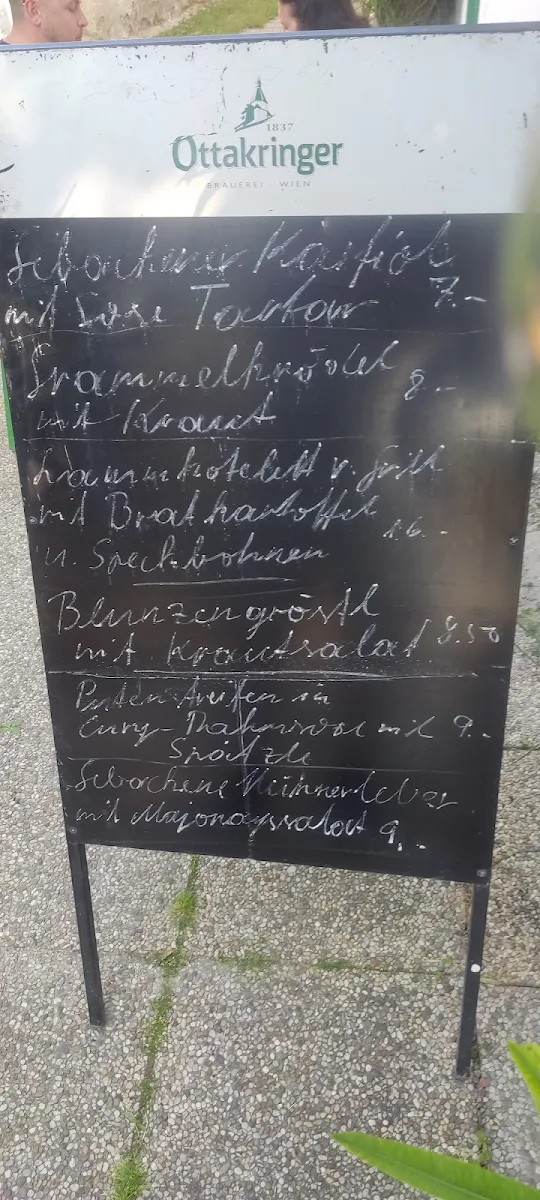 1837
Ottakringer
BRAUEREI WIEN
Gebackener Karfiol
mit Sose Tartar 7.-
Grammelknödel 8.-
mit Kraut
Lammkotelett v. Grill
mit Bratkartoffel 16.-
u. Speckbohnen
Blunzengröstl
mit Krautsalat 8.50
Putenstreifen in
Curry-Rahmsose mit 9.-
Spätzle
Gebackene Hühnerleber
mit Majonaysalat 9.-